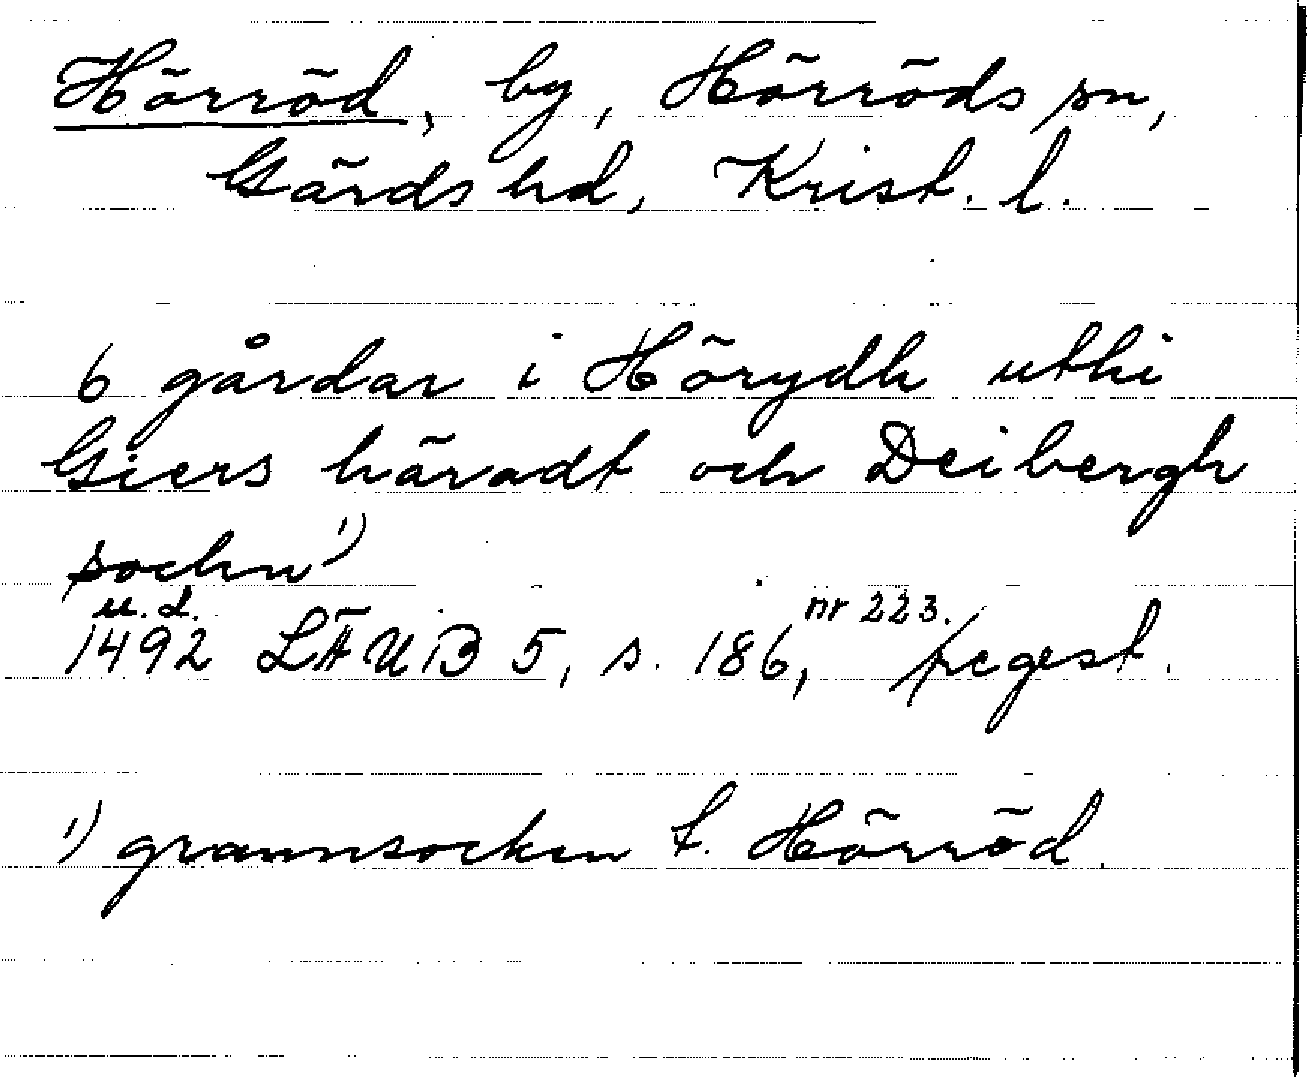 Hörröd, by, Hörröds sn,
Gärds hd, Krist. l.
6 gårdar i Hörydh uthi
Giers häradt och Deibergh
sochn 1)
u.d. nr 223.
1492 LÄUB 5, s. 186, regest.
1) grannsocken t. Hörröd.